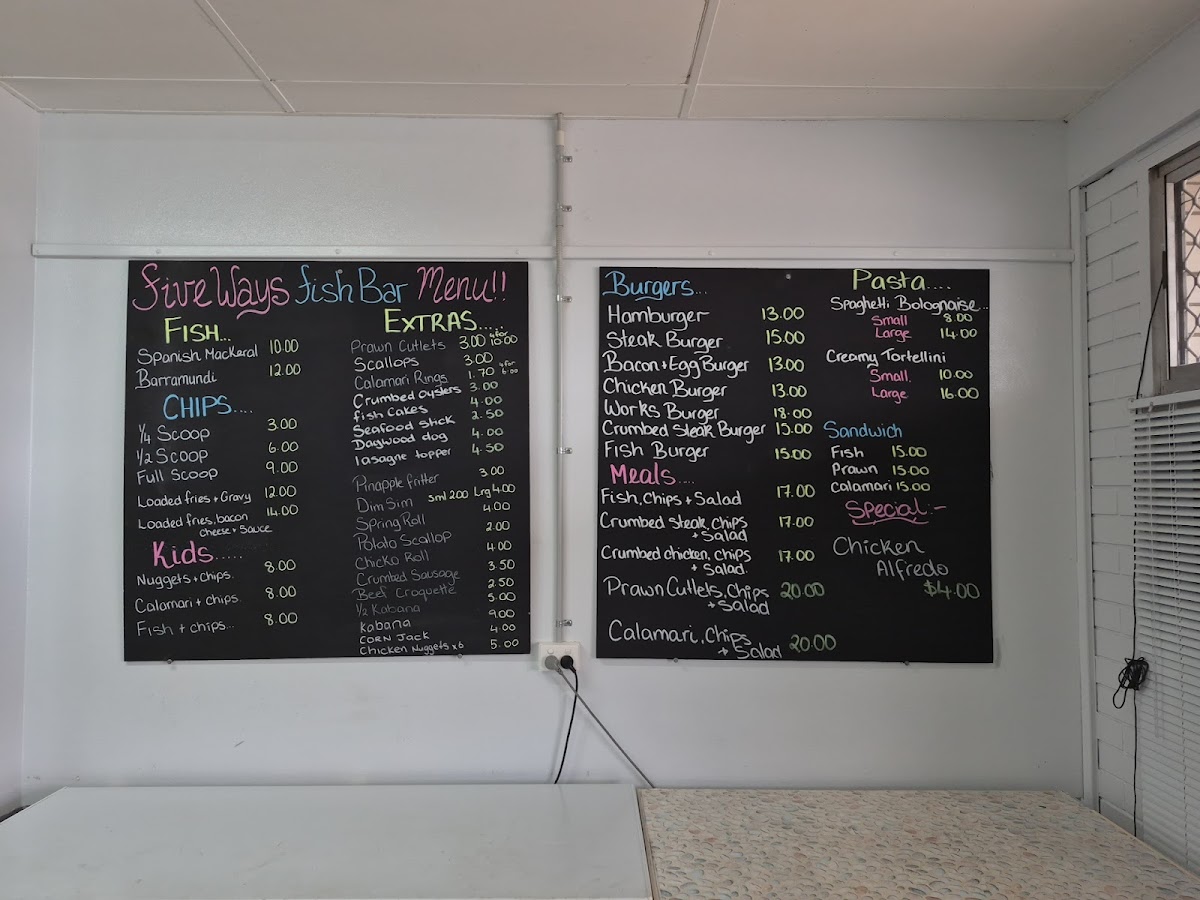 Five Ways fish Bar Menu!!
FISH...
Spanish Mackeral 10.00
Barramundi 12.00
CHIPS....
1/4 Scoop 3.00
1/2 Scoop 6.00
Full Scoop 9.00
Loaded fries + Gravy 12.00
Loaded fries, bacon 14.00
cheese + Sauce
Kids......
Nuggets + chips. 8.00
Calamari + chips. 8.00
Fish + chips... 8.00
EXTRAS.....
Prawn Cutlets 3.00 4 for 10.00
Scallops 3.00
Calamari Rings 1.70 4 for 6.00
Crumbed oysters 3.00
fish cakes 4.00
Seafood stick 2.50
Dagwood dog 4.00
lasagne topper 4.50
Pinapple fritter 3.00
Dim Sim sml 2.00 Lrg 4.00
Spring Roll 4.00
Potato Scallop 2.00
Chicko Roll 4.00
Crumbed Sausage 3.50
Beef Croquette 2.50
1/2 Kabana 5.00
Kabana 9.00
CORN JACK 4.00
Chicken Nuggets x6 5.00
Burgers...
Hamburger 13.00
Steak Burger 15.00
Bacon + Egg Burger 13.00
Chicken Burger 13.00
Works Burger 18.00
Crumbed Steak Burger 15.00
Fish Burger 15.00
Meals....
Fish, Chips + Salad 17.00
Crumbed steak, chips 17.00
+ Salad
Crumbed chicken, chips 17.00
+ Salad.
Prawn Cutlets, Chips 20.00
+ Salad
Calamari, Chips 20.00
+ Salad
Pasta....
Spaghetti Bolognaise...
Small 8.00
Large 14.00
Creamy Tortellini
Small. 10.00
Large 16.00
Sandwich
Fish 15.00
Prawn 15.00
Calamari 15.00
Special:-
Chicken
Alfredo
$4.00